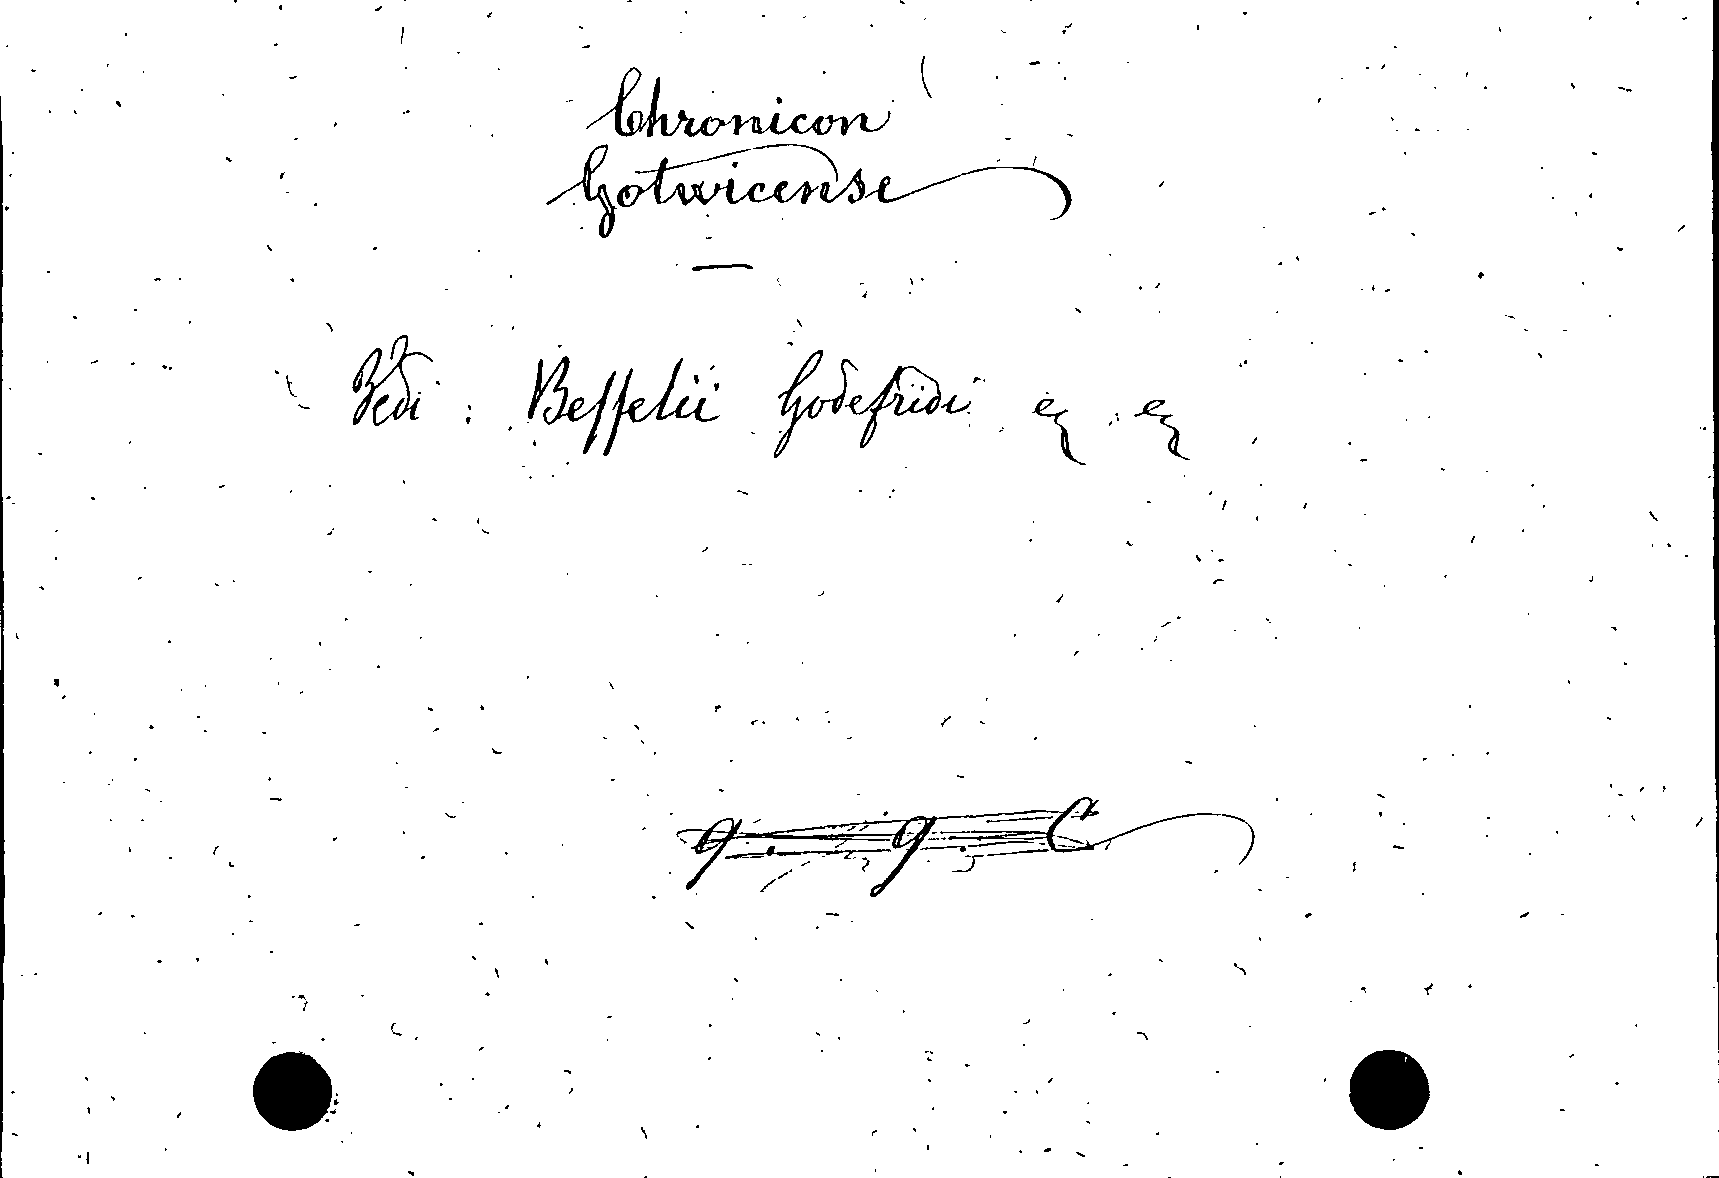 Chronicon
Gotwicense
—
Vedi : Besselii Godefridi
9. 9. C